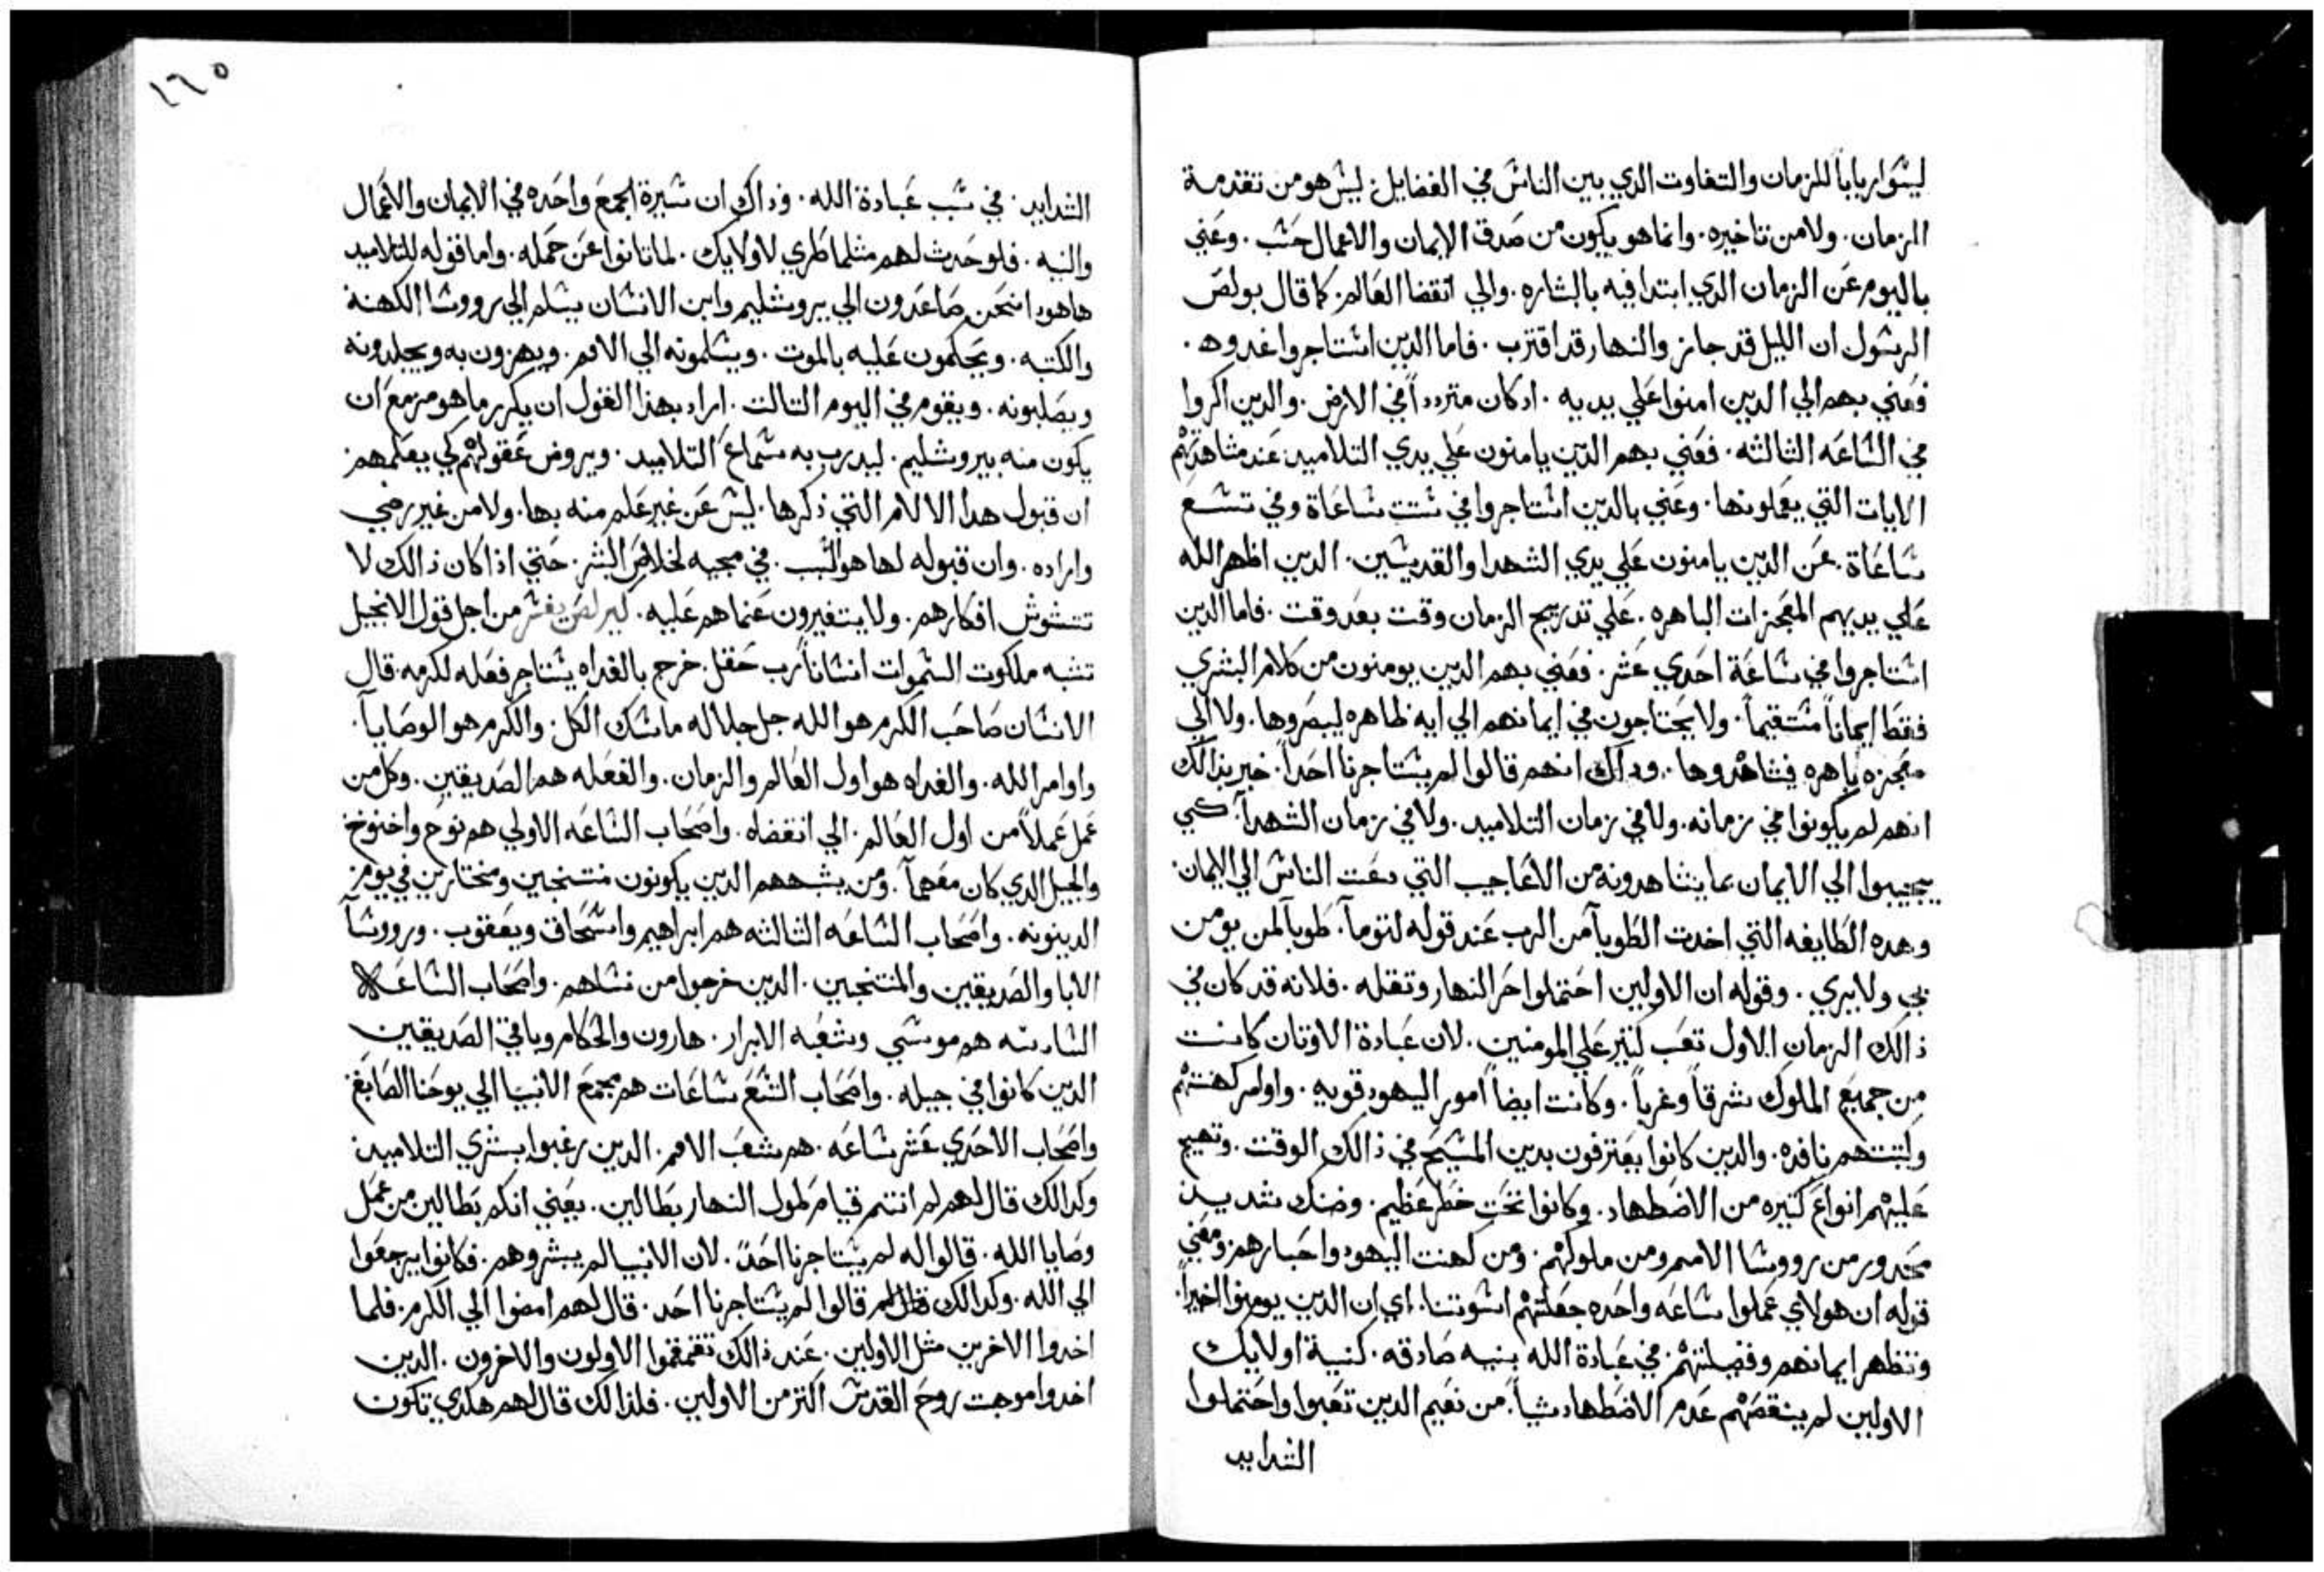 ليسوا ربابا للزمان والتفاوت الدي بين الناس في الفضايل. ليس هو من تقدمة
الزمان. ولا من تاخيره. وانما هو يكون من صدق الايمان والاعمال حسب. وعني
باليوم عن الزمان الدي ابتدا فيه بالبشاره. والي انقضا العالم. كما قال بولص
الرسول ان الليل قد جاز والنهار قد اقترب. فاما الدين استاجروا غدوه.
فعني بهم الي الدين امنوا علي يديه. اد كان مترددا في الارض. والدين اكروا
في الساعه الثالثه. فعني بهم الدين يامنون علي يدي التلاميد. عند مشاهدتهم
الايات التي يعملونها. وعني بالدين استاجروا في ستت ساعاة وفي تسع
ساعاة. عن الدين يامنون علي يدي الشهدا والقديسين. الدين اظهر الله
علي يديهم المعجزات الباهره. علي تدريج الزمان وقت بعد وقت. فاما الدين
استاجروا في ساعة احدي عشر. فعني بهم الدين يومنون من كلام البشري
فقط ايمانا مستقيما. ولا يحتاجون في ايمانهم الي ايه ظاهره ليبصروها. ولا الي
معجزه باهره فيشاهدوها. وداك انهم قالوا لم يستاجرنا احدا. خبر بدالك
انهم لم يكونوا في زمانه. ولا في زمان التلاميد. ولا في زمان الشهدا. كي
يجيبوا الي الايمان بما يشاهدونه من الاعاجيب التي دعت الناس الي الايمان.
وهده الطايفه التي اخدت الطوبا من الرب عند قوله لتوما. طوبا لمن يومن
بي ولا يري. وقوله ان الاولين احتملوا حر النهار وتقله. فلانه قد كان في
ذالك الزمان الاول تعب كتير علي المومنين. لان عبادة الاوتان كانت
من جميع الملوك شرقا وغربا. وكانت ايضا امور اليهود قويه. واوامر كهنتهم
وكتبتهم نافده. والدين كانوا يعترفون بدين المسيح في ذالك الوقت. وتهيج
عليهم انواع كتيره من الاضطهاد. وكانوا تحت خطر عظيم. وضنك شديد
محدور من رووسا الامم ومن ملوكهم. ومن كهنت اليهود واحبارهم. ومعني
قوله ان هولاي عملوا ساعه واحده جعلتهم اسوتنا. اي ان الدين يومنوا اخيرا.
وتظهر ايمانهم وفضيلتهم. في عبادة الله بنيه صادقه. كنية اولايك
الاولين لم ينقصهم عدم الاضطهاد شيا. من نعيم الدين تعبوا واحتملوا
الشدايد
١٦٥
الشدايد. في سبب عبادة الله. وذاك ان سيرة الجمع واحده في الايمان والاعمال
والنيه. فلو حدث لهم مثلما طري لاولايك. لما تانوا عن حمله. واما قوله للتلاميد
هاهودا نحن صاعدون الي يروشليم وابن الانسان يسلم الي رووسا الكهنة
والكتبه. ويحكمون عليه بالموت. ويسلمونه الي الامم. ويهزون به ويجلدونه
ويصلبونه. ويقوم في اليوم التالت. اراد بهذا القول ان يكرر ما هو مزمع ان
يكون منه بيروشليم. ليدرب به سماع التلاميد. ويروض عقولهم كي يعلمهم
ان قبول هدا الالام التي ذكرها. ليس عن غير علم منه بها. ولا من غير رضي
واراده. وان قبوله لها هو السبب. في مجيه لخلاص البشر. حتي اذا كان ذالك لا
تتشوش افكارهم. ولا يتغيرون عنما هم عليه. كيرلص يفسر من اجل قول الانجيل
تشبه ملكوت السموات انسانا رب حقل. خرج بالغداه يستاجر فعله لكرمه. قال
الانسان صاحب الكرم هو الله جل جلاله ماسك الكل. والكرم هو الوصايا.
واوامر الله. والغداه هو اول العالم والزمان. والفعله هم الصديقين. وكل من
عمل عملا من اول العالم. الي انقضاه. واصحاب الساعه الاولي هم نوح واخنوخ
والجيل الدي كان معهما. ومن يشبههم الدين يكونون منتجبين ومختارين في يوم
الدينونه. واصحاب الساعه التالته هم ابراهيم واسحاق ويعقوب. ورووسا
الابا والصديقين والمنتجبين. الدين خرجوا من نسلهم. واصحاب الساعه
السادسه هم موسي وشعبه الابرار. هارون والحكام وباقي الصديقين
الدين كانوا في جيله. واصحاب التسع ساعات هم مجمع الانبيا الي يوحنا الصابغ
واصحاب الاحدي عشر ساعه. هم شعب الامم. الدين رغبوا بشري التلاميد
وكدالك قال لهم لم انتم قيام طول النهار بطالين. يعني انكم بطالين من عمل
وصايا الله. قالوا له لم يستاجرنا احد. لان الانبيا لم يبشروهم. فكانوا يرجعوا
الي الله. وكدالك قالوا لم يستاجرنا احد. قال لهم امضوا الي الكرم. فلما
اخدوا الاخرين مثل الاولين. عند ذالك تقمقموا الاولون والاخرون. الدين
اخدوا موهبت روح القدس اكتر من الاولين. فلذالك قال لهم هكدي تكون